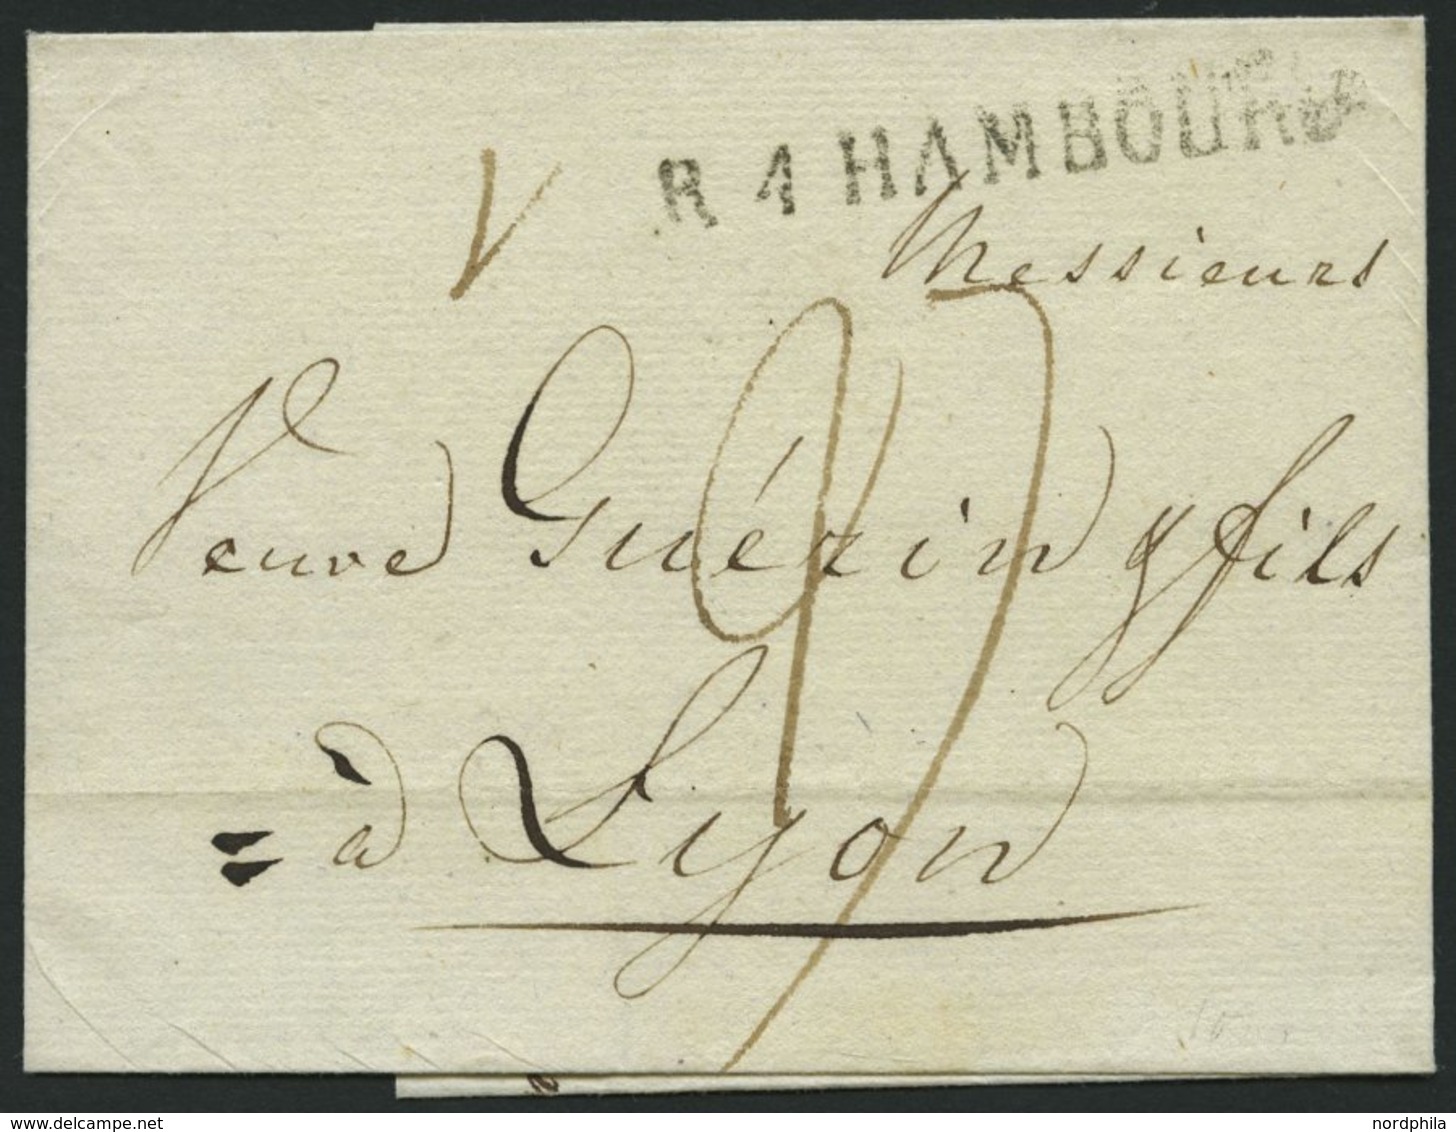 R 1 HAMBOURG
Messieurs
Veuve Guérin & fils
à Lyon
www.delcampe.net
nordphila